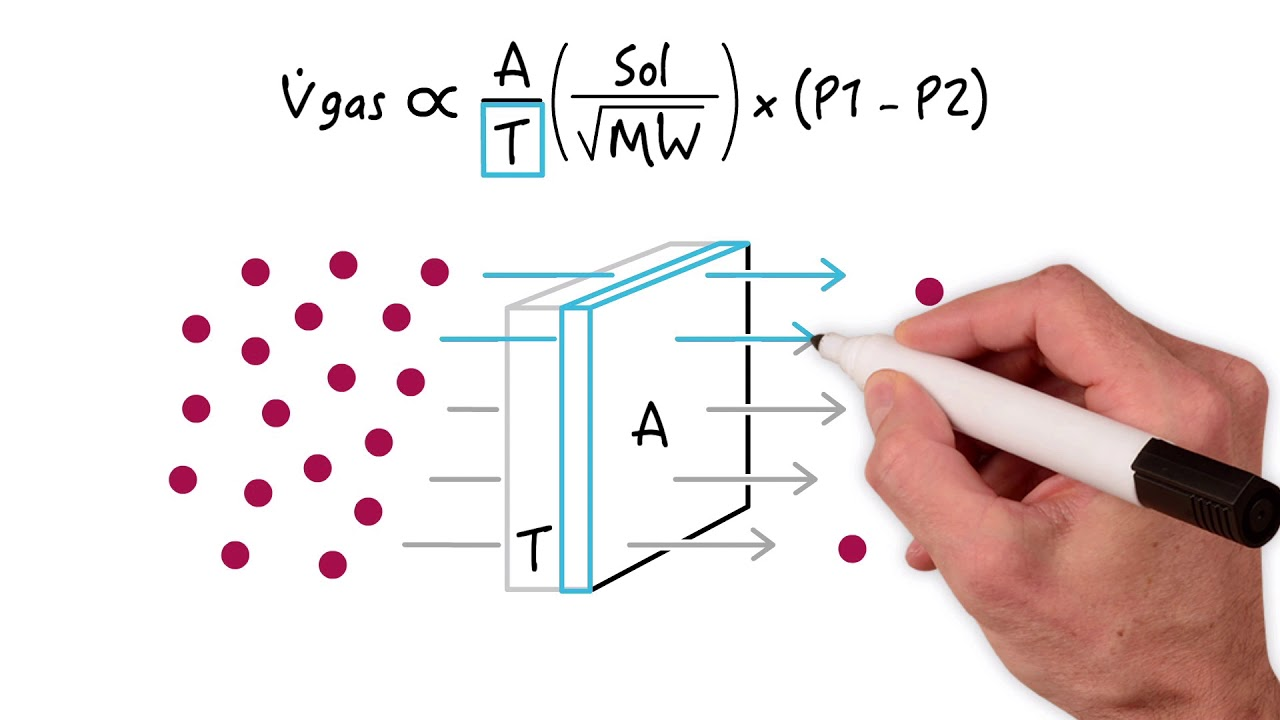 V̇gas ∝ A/T (Sol/√MW) × (P1 - P2)
A
T